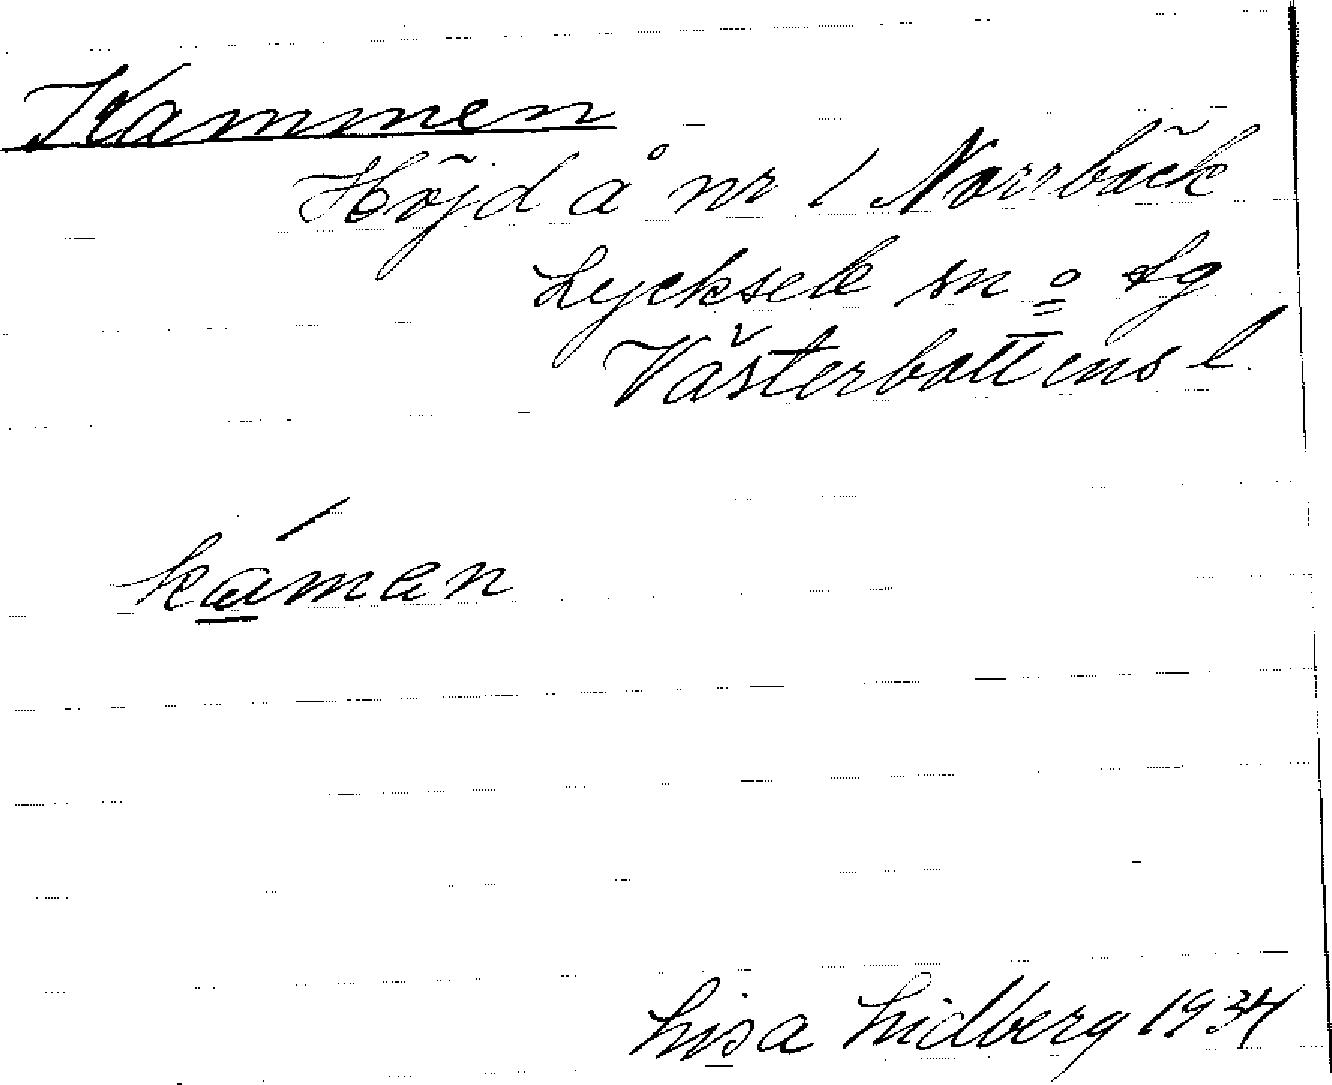 Kammen
Höjd å nr 1 Norrbäck
Lycksele sn o. lg
Västerbottens l.
kámen
Lisa Lidberg 1934